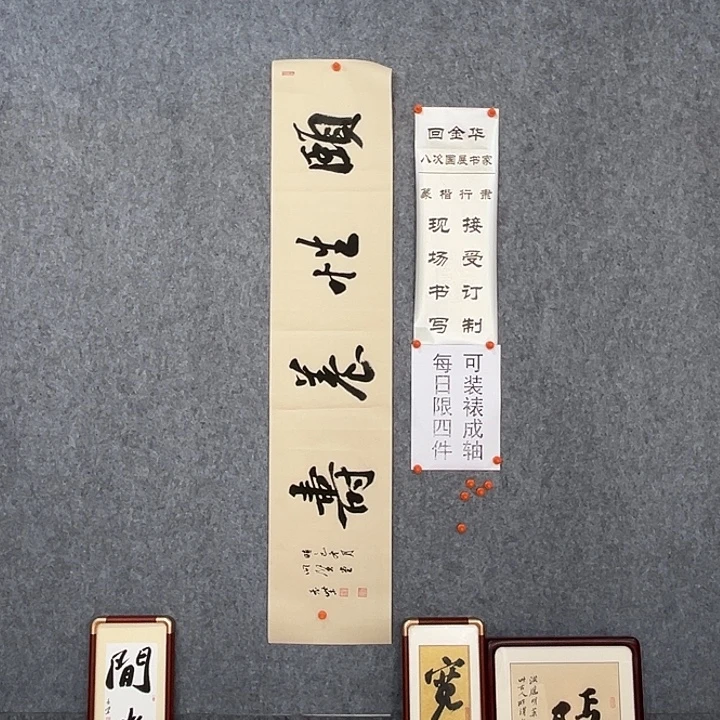 頤性養壽
回金华
八次国展书家
篆楷行隶
接受订制
现场书写
可装裱成轴
每日限四件
閒
寬